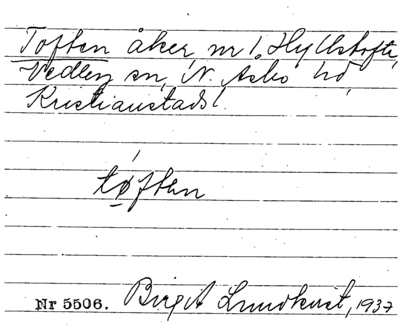 Toften åker, nr 1, Hyllstofta,
Vedby sn, N. Åsbo hd
Kristianstads l.
tøften
Nr 5506. Birgit Lundkvist, 1937